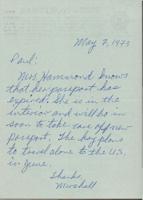 May 7, 1973
Paul:
Mrs Hammond knows
that her passport has
expired. She is in the
interior and will be in
soon to take care of new
passport. The boy plans
to travel alone to the U.S.
in June.
Thanks,
Marshall